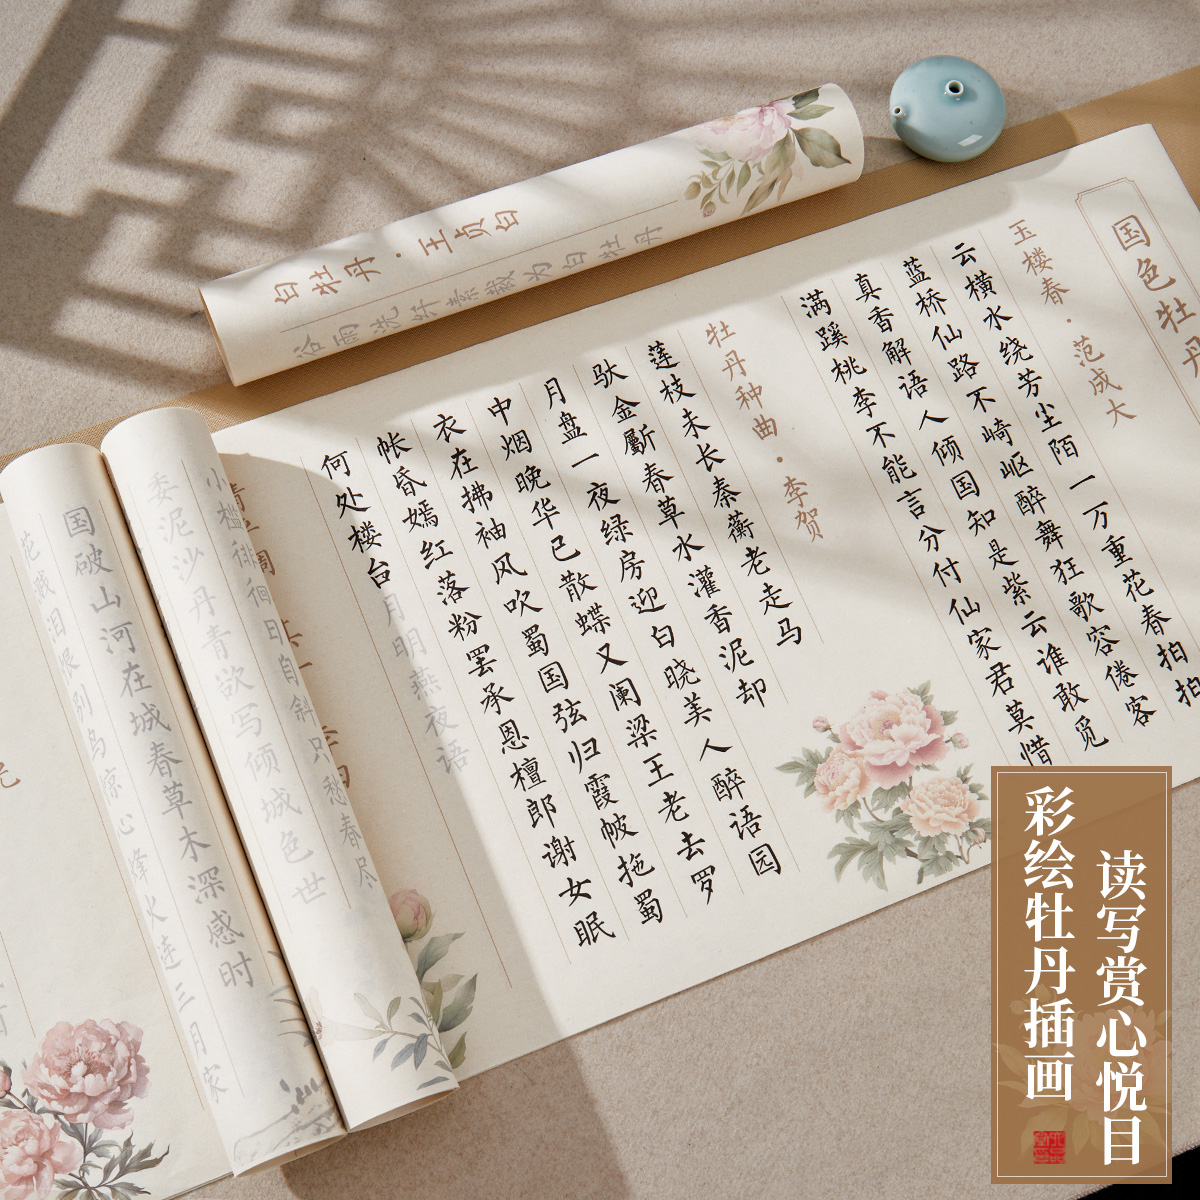 国色牡丹
玉楼春·范成大
云横水绕芳尘陌一万重花春拍拍
蓝桥仙路不崎岖醉舞狂歌容倦客
真香解语人倾国知是紫云谁敢觅
满蹊桃李不能言分付仙家君莫惜
牡丹种曲·李贺
莲枝未长秦蘅老走马
驮金斸春草水灌香泥却
月盘一夜绿房迎白晓美人醉语园
中烟晚华已散蝶又阑梁王老去罗
衣在拂袖风吹蜀国弦归霞帔拖蜀
帐昏嫣红落粉罢承恩檀郎谢女眠
何处楼台月明燕夜语
白牡丹·王贞白
谷雨洗纤素裁为白牡丹
小槛徘徊日自斜只愁春尽
委泥沙丹青欲写倾城色世
国破山河在城春草木深感时
花溅泪恨别鸟惊心烽火连三月家
读写赏心悦目
彩绘牡丹插画